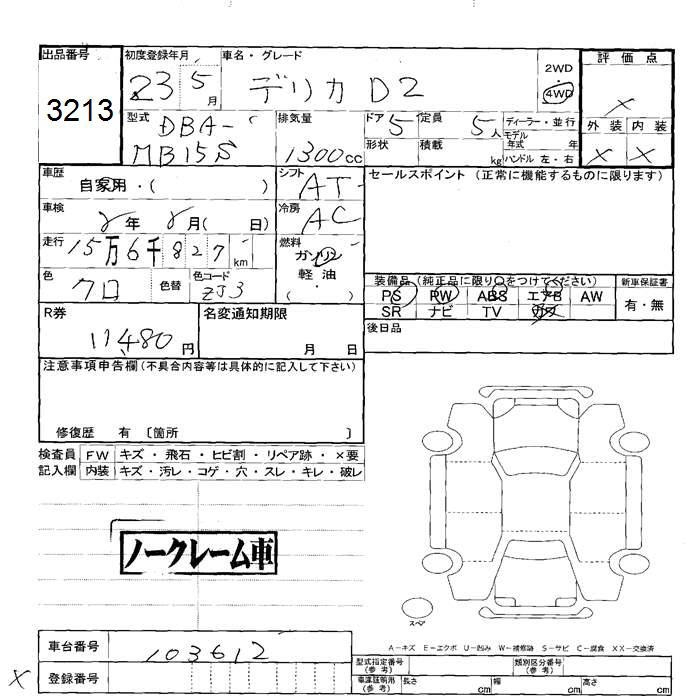 出品番号 初度登録年月 車名・グレード 2WD 評価点
3213 23 5月 デリカD2 4WD ×
型式 DBA- 排気量 ドア 5 定員 5人 ディーラー・並行 外装 内装
MB15S 1300cc 形状 積載 kg モデル年式 年 ハンドル 左・右 × ×
車歴 自家用・( ) シフト AT セールスポイント (正常に機能するものに限ります)
車検 年 月( 日) 冷房 AC
走行 15万6千827km 燃料 ガソリン
色 クロ 色替 色コード ZJ3 軽油 ( ) 装備品(純正品に限り○をつけてください) 新車保証書
PS PW ABS エアB AW 有・無
R券 名変通知期限 SR ナビ TV
11,480円 月 日 後日品
注意事項申告欄(不具合内容等は具体的に記入して下さい)
修復歴 有 〔箇所 〕
検査員 FW キズ・飛石・ヒビ割・リペア跡・×要
記入欄 内装 キズ・汚レ・コゲ・穴・スレ・キレ・破レ
ノークレーム車
スペア
A-キズ E-エクボ U-凹み W-補修跡 S-サビ C-腐食 XX-交換済
車台番号 103612 型式指定番号(参考) 類別区分番号(参考)
× 登録番号 車庫証明用(参考) 長さ cm 幅 cm 高さ cm